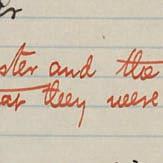 ster and the
at they were